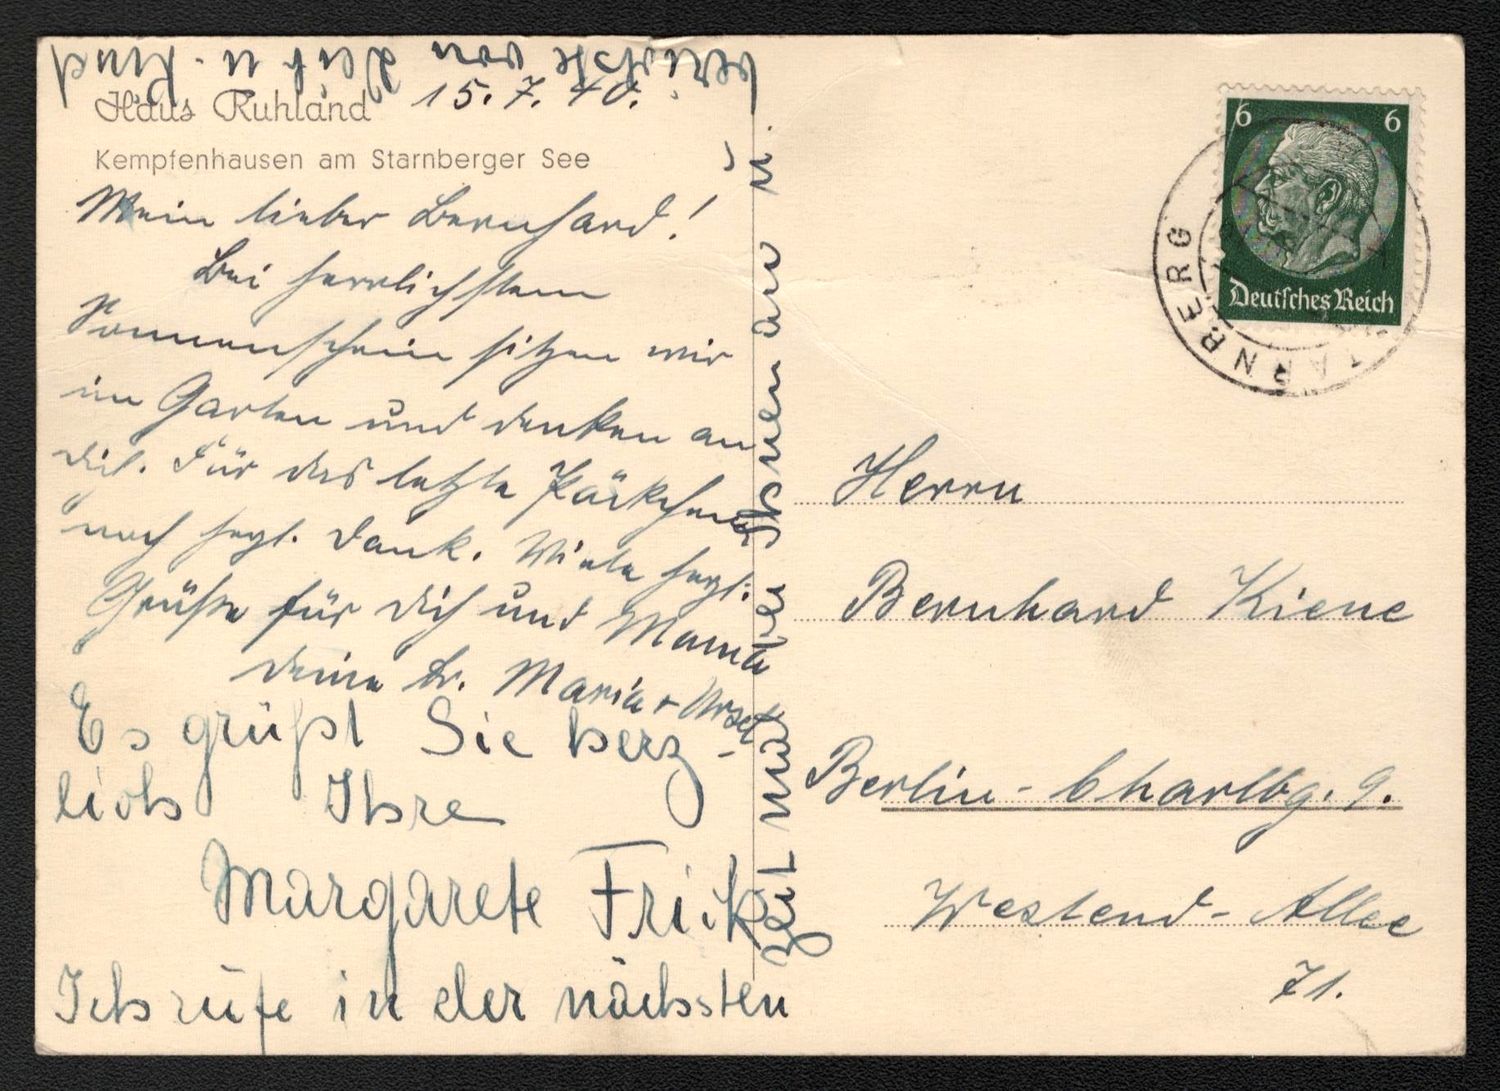 Haus Ruhland
15.7.40.
Kempfenhausen am Starnberger See
Mein lieber Bernhard!
Bei herrlichstem
Sonnenschein sitzen wir
im Garten und denken an
dich. Für das letzte Päckchen
noch hzgl. Dank. Viele hzgl.
Grüße für dich und Mama
deine br. Maria + Ursel
Es grüßt Sie herz-
lich Ihre
Margarete Frick
Ich rufe in der nächsten
Zeit mal bei Ihnen an u.
berichte von Leib u. Kind
6 6
Deutsches Reich
STARNBERG
Herrn
Bernhard Kiene
Berlin-Charlbg. 9.
Westend-Allee
71.